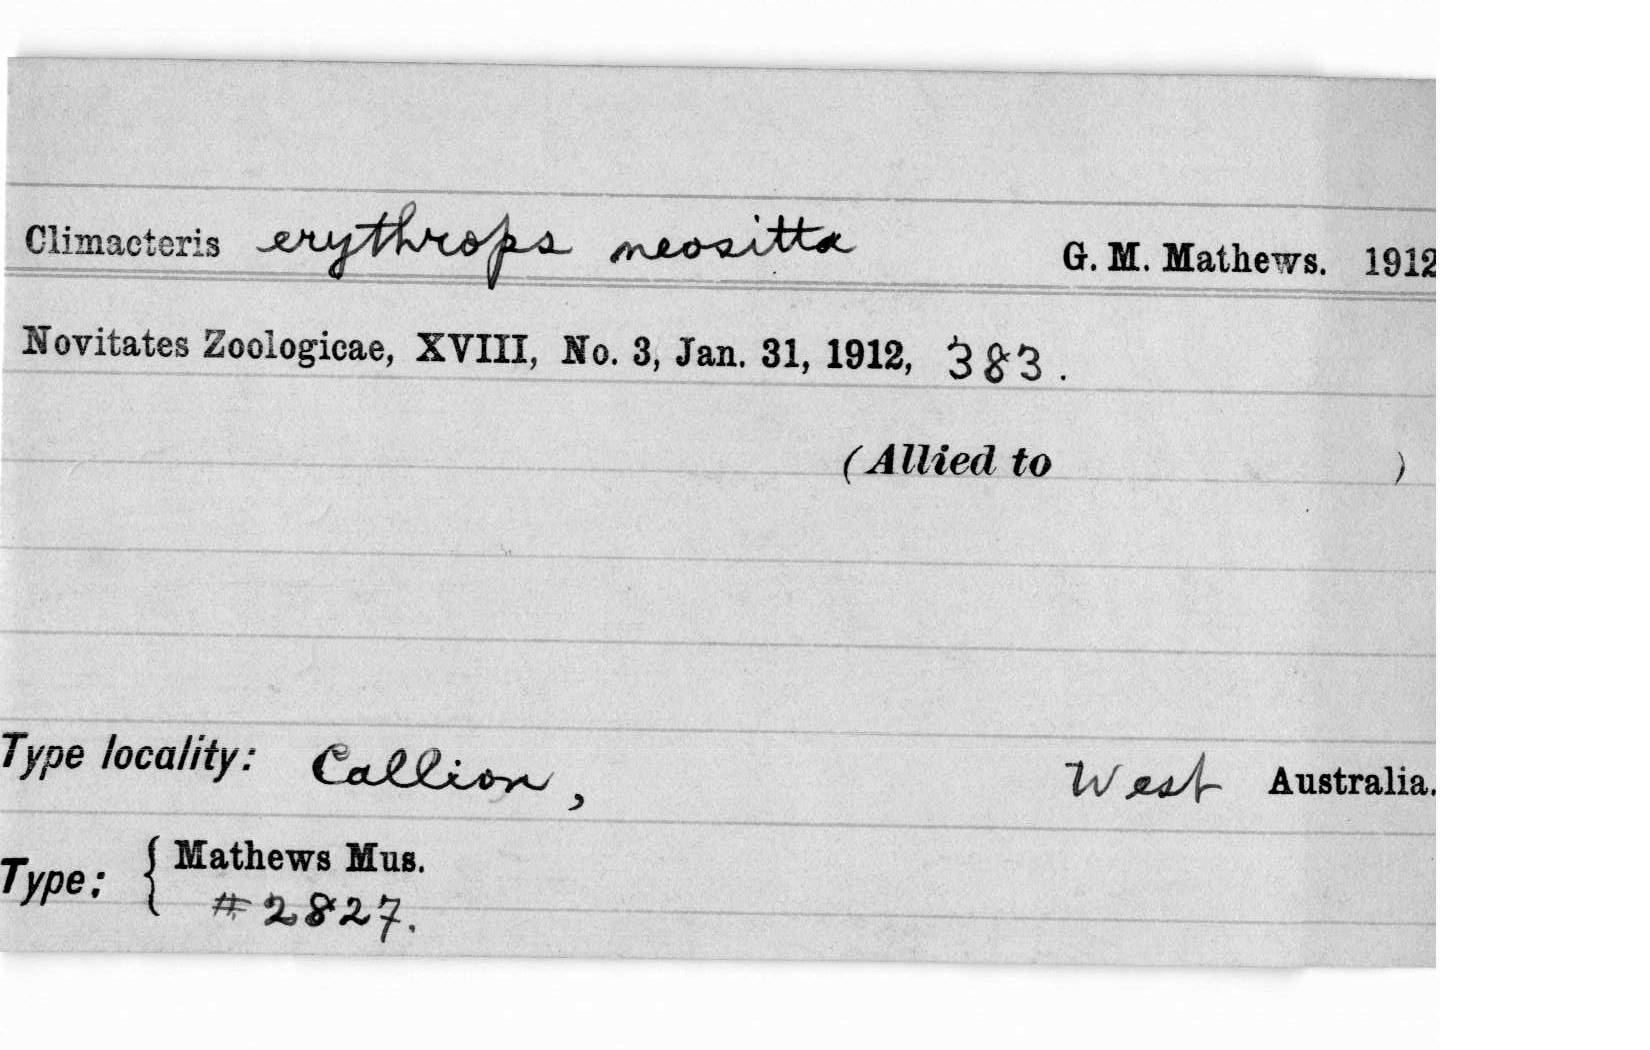 Climacteris erythrops neositta G. M. Mathews. 1912
Novitates Zoologicae, XVIII, No. 3, Jan. 31, 1912, 383.
(Allied to )
Type locality: Callion, West Australia.
Type: { Mathews Mus.
#2827.